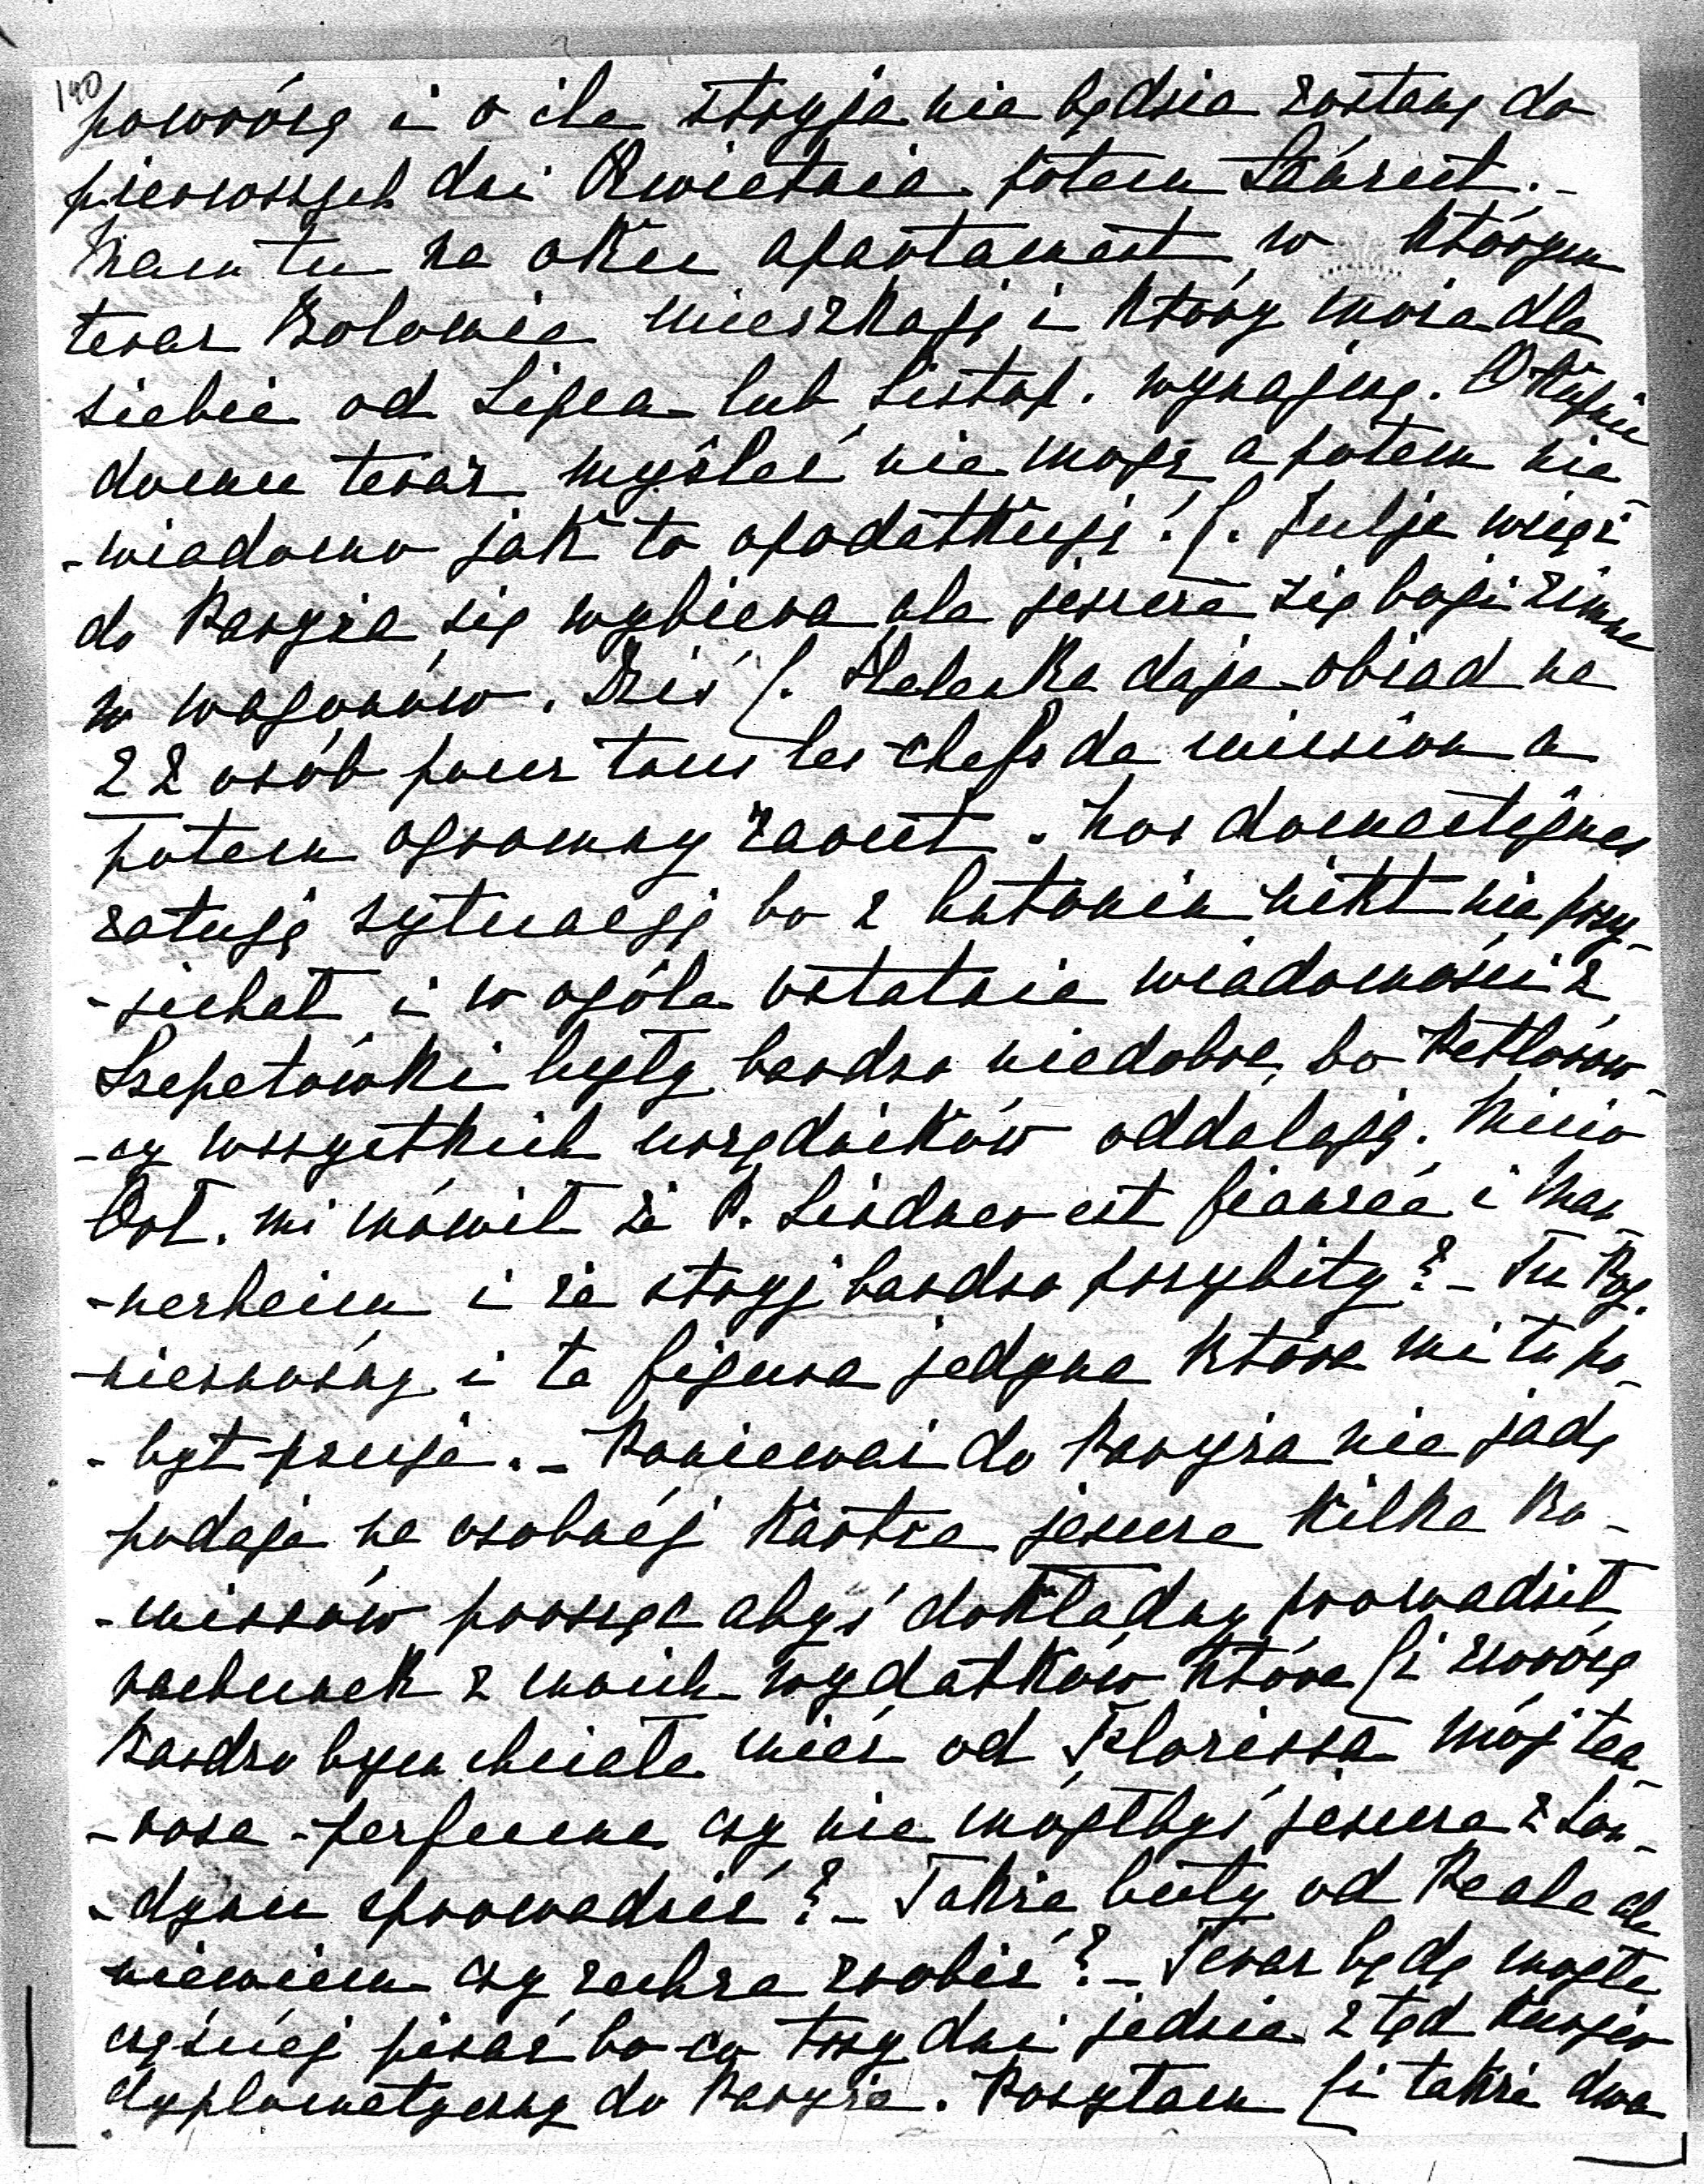 140
powrócę i o ile stryja nie będzie zostanę do
pierwszych dni Kwietnia potem Łańcut. -
Mam tu na oku apartament w którym
teraz mieszkają i który może dla
siebie od Lipca lub Listop. wynajmę. O kupnie
domu teraz myśleć nie mogę a potem nie-
-wiadomo jak to opodatkują! C. Julja wciąż
do Paryża się wybiera ale jeszcze się boji zimna
w wagonów. Dziś C. Helenka daje obiad na
22 osób pour tous les chefs de mission a
potem ogromny raout. Nos domestiques
ratują sytuację bo z Antonin nikt nie przy-
-jechał i w ogóle ostatnie wiadomości z
Szepetówki były bardzo niedobre, bo Petlurow-
-cy wszystkich urzędników oddalają. Micio
Orł. mi mówił że P. Lindner est fiancée i Man-
-nerheim i że stryj bardzo przybity? - Tu
i ta figura jedyna która mi tu po-
-byt psuje. - Ponieważ do Paryża nie jadę
podaje na osobnéj kartce jeszcze kilka ko-
-missów prosząc abyś dokładny prowadził
rachunek z moich wydatków które Ci zwrócę
Bardzo bym chciała mieć od Florissa mój tea-
-rose-perfume czy nie mógłbyś jeszcze z Lon-
-dynu sprowadzić? - Także buty od Peala ale
niewiem czy zechce zrobić? - Teraz będę mogła
częściéj pisać bo co trzy dni jedzie z tąd kurjer
dyplomatyczny do Paryża. Posyłam Ci także dwa